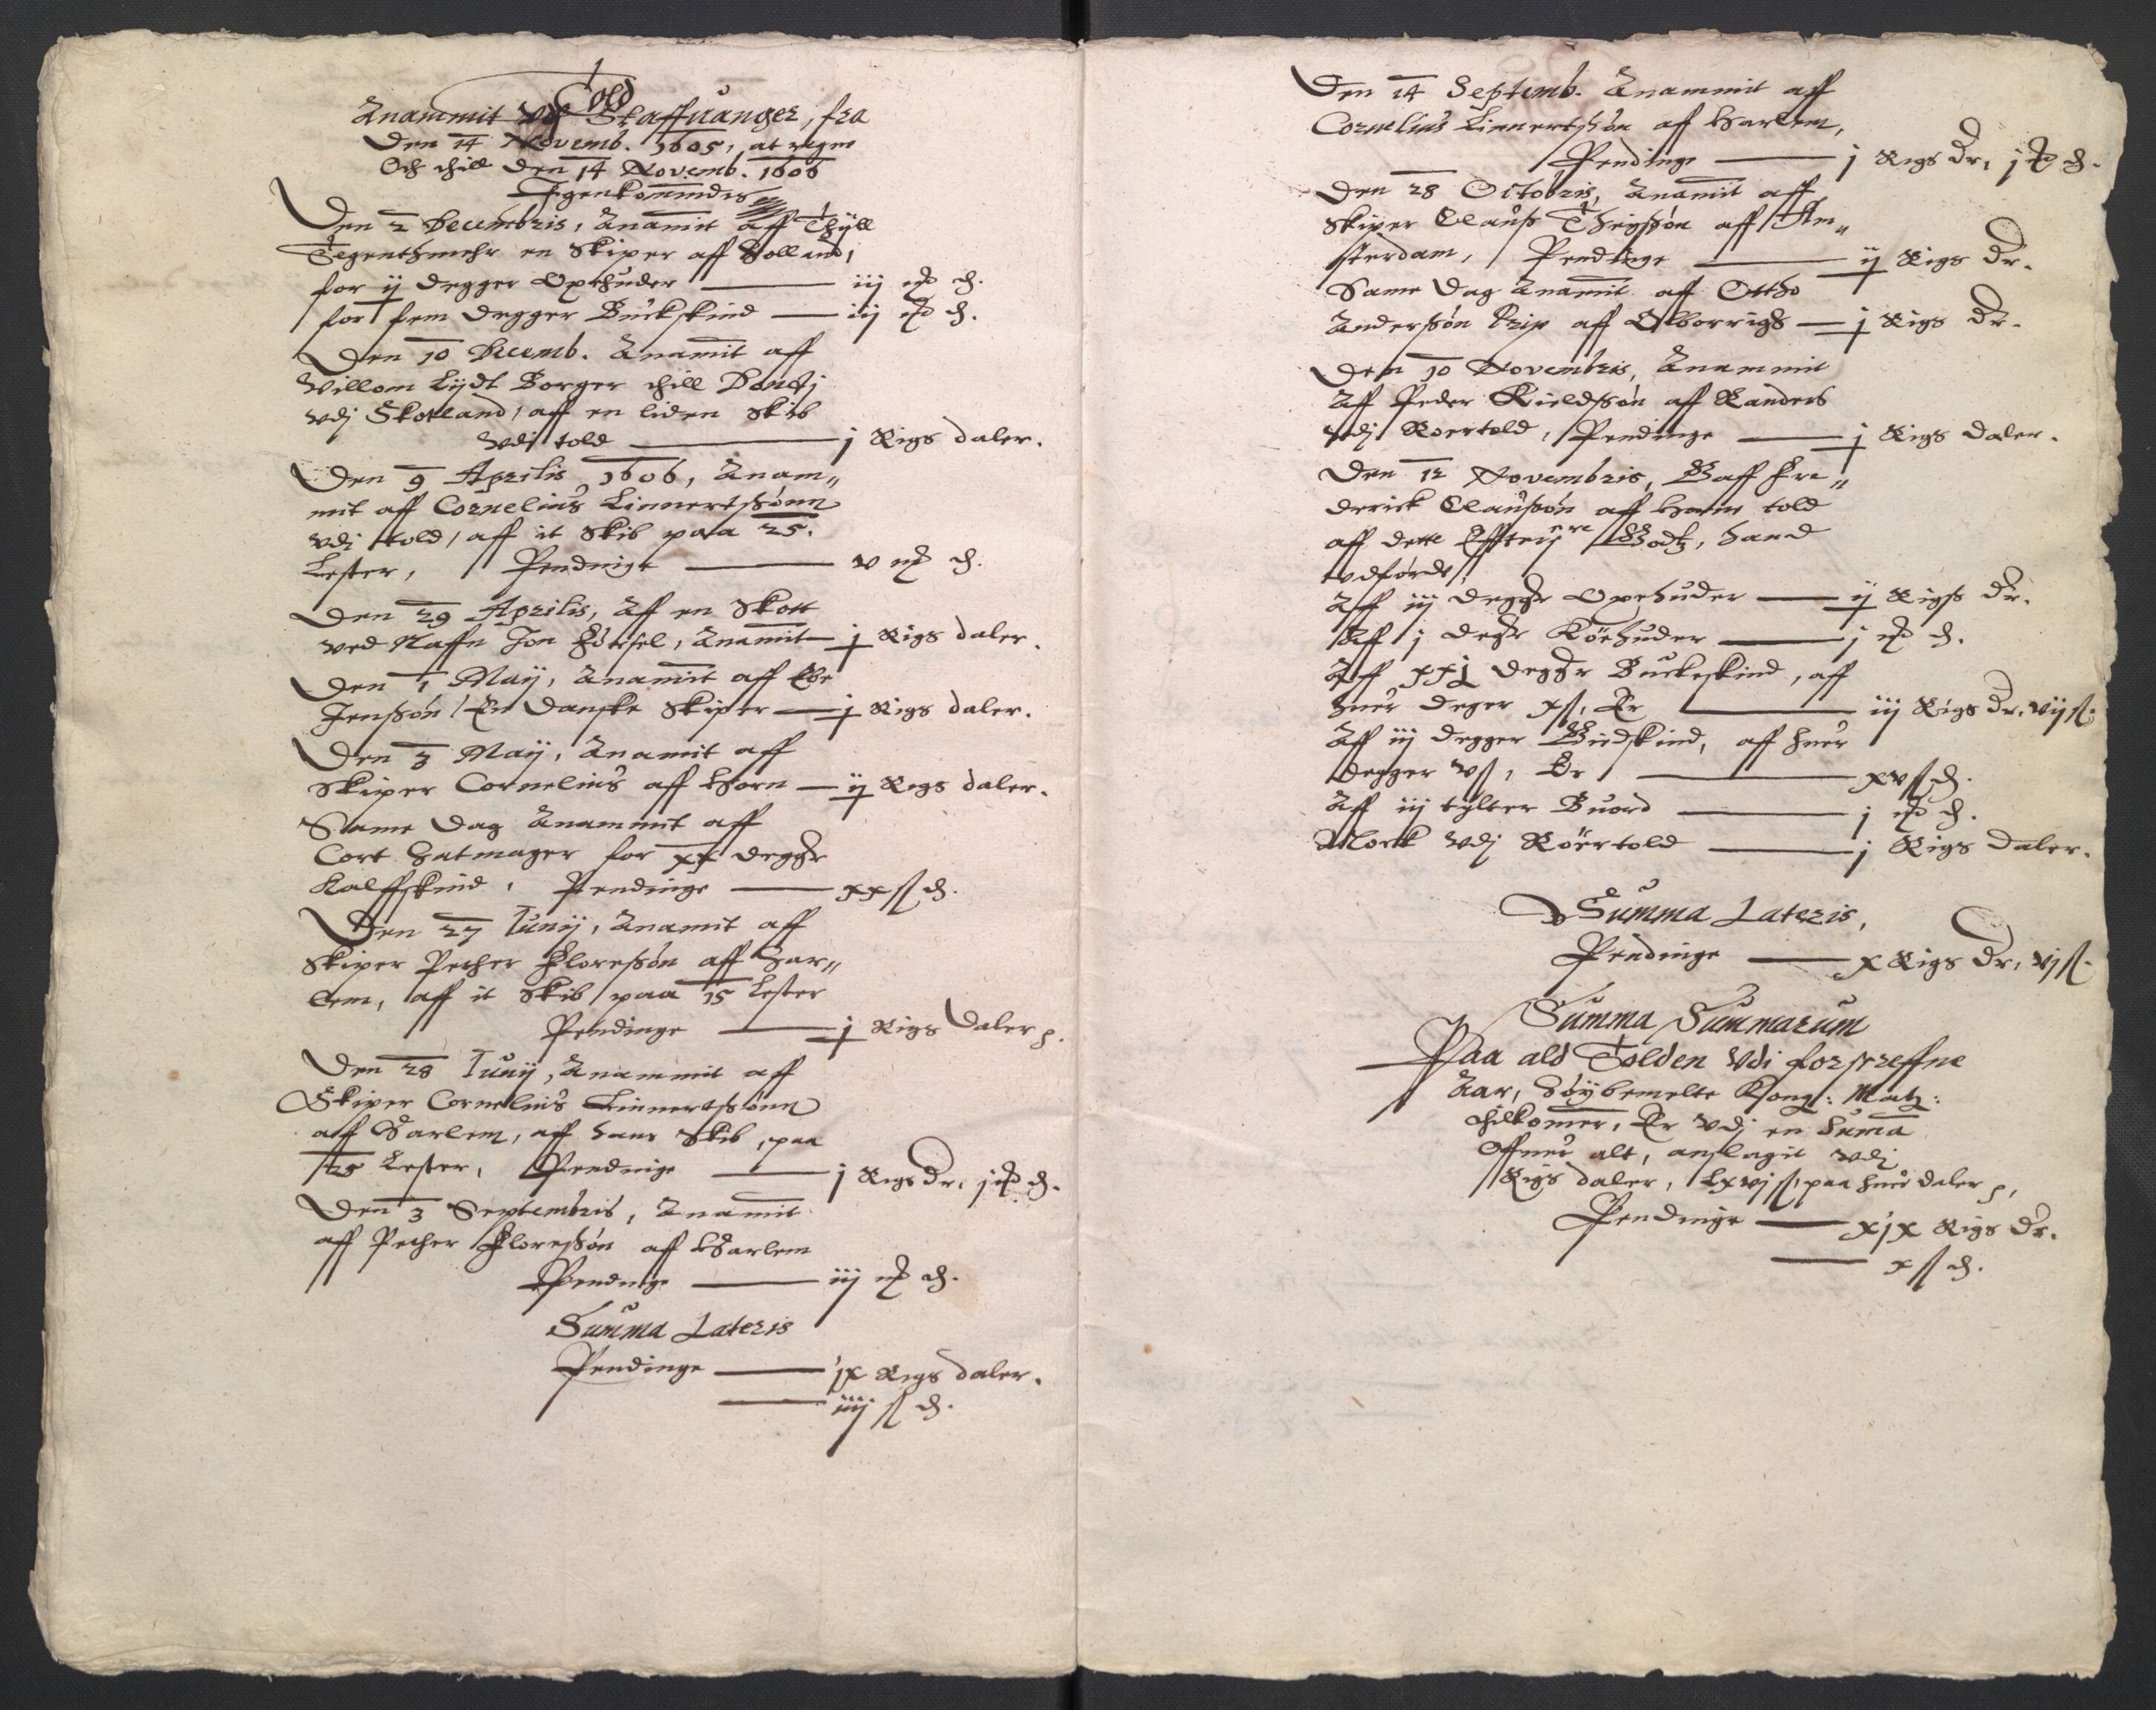 Told
Anammit vdj Staffuanger, fra
Den 14 Novemb. 1605, at regne
Och thill den 14 Novemb. 1606
Igenkommendes
Den 2 Decembris, Anamit aff Thyll
en Skiper aff Holland,
for ij degger Oxehuder — iij mk d.
for fem degger Buckskind — iij mk d.
Den 10 Decemb. Anamit aff
Villom Lydt Borger thill
vdj Skotland, aff en liden Skib
vdi told — j Rigs daler.
Den 9 Aprilis 1606, Anam„
mit aff Cornelius Linnertssönn
vdi told, aff it Skib paa 25.
Lester, Pendinge — v mk d.
Den 29 Aprilis, Aff en Skott
ved Naffn Jon, Anamit — j Rigs daler.
Den 1 Maij, Anamit aff Ebe
Jenssön, En Danske Skiper — j Rigs daler.
Den 3 Maij, Anamit aff
Skiper Cornelius aff Horn — ij Rigs daler.
Same Dag Anammit aff
Cort Hatmager for xx degger
Kalffskind, Pendinge — xx ß d.
Den 27 Iunij, Anamit aff
Skiper Pether Floressön aff Har„
lem, aff it Skib paa 15 Lester
Pendinge — j Rigs Daler
Den 28 Iunij, Anammit aff
Skiper Cornelius Linnertssönn
aff Harlem, aff hans Skib, paa
25 Lester, Pendinge — j Rigs dr, j mk d.
Den 3 Septembris, Anamit
aff Pether Floressön aff Harlem
Pendinge — iij mk d.
Summa Lateris
Pendinge — ix Rigs daler.
— iiij ß d.
Den 14 Septemb. Anammit aff
Cornelius Linnertssön aff Harlem,
Pendinge — j Rigs dr, j mk d.
Den 28 Octobris, Anamit aff
Skiper Clauß Thyssön aff Am„
sterdam, Pendinge — ij Rigs dr.
Same Dag Anamit aff Ottho
Anderssön Krip aff Olborrigh — j Rigs dr.
Den 10 Novembris, Anammit
Aff Peder Kieldssön aff Randers
vdj Roertold, Pendinge — j Rigs daler.
Den 12 Novembris, Gaff Fre„
derick Claussön aff Horns told
aff dette Effterne Godtz, hand
vdförde,
Aff iij degger Oxehuder — ij Rigs dr.
Aff j deger Köehuder — j mk d.
Aff degger Buckskind, aff
huer deger x ß, Er — iij Rigs dr, vij ß.
Aff iij degger Giedskind, aff huer
degger v ß, Er — xv ß d.
Aff iij tylter Buord — j mk d.
Noch vdj Röertold — j Rigs daler.
Summa Lateris,
Pendinge — x Rigs dr, vj ß.
Summa Summarum
Paa ald Tolden vdi forskreffne
Aar, Höybemelte Kong: Matz:
thilkomer, Er vdj en Suma
Offuer alt, anslagit vdj
Rigs daler, Lxvj ß, paa huer daler,
Pendinge — xix Rigs dr.
— x ß d.